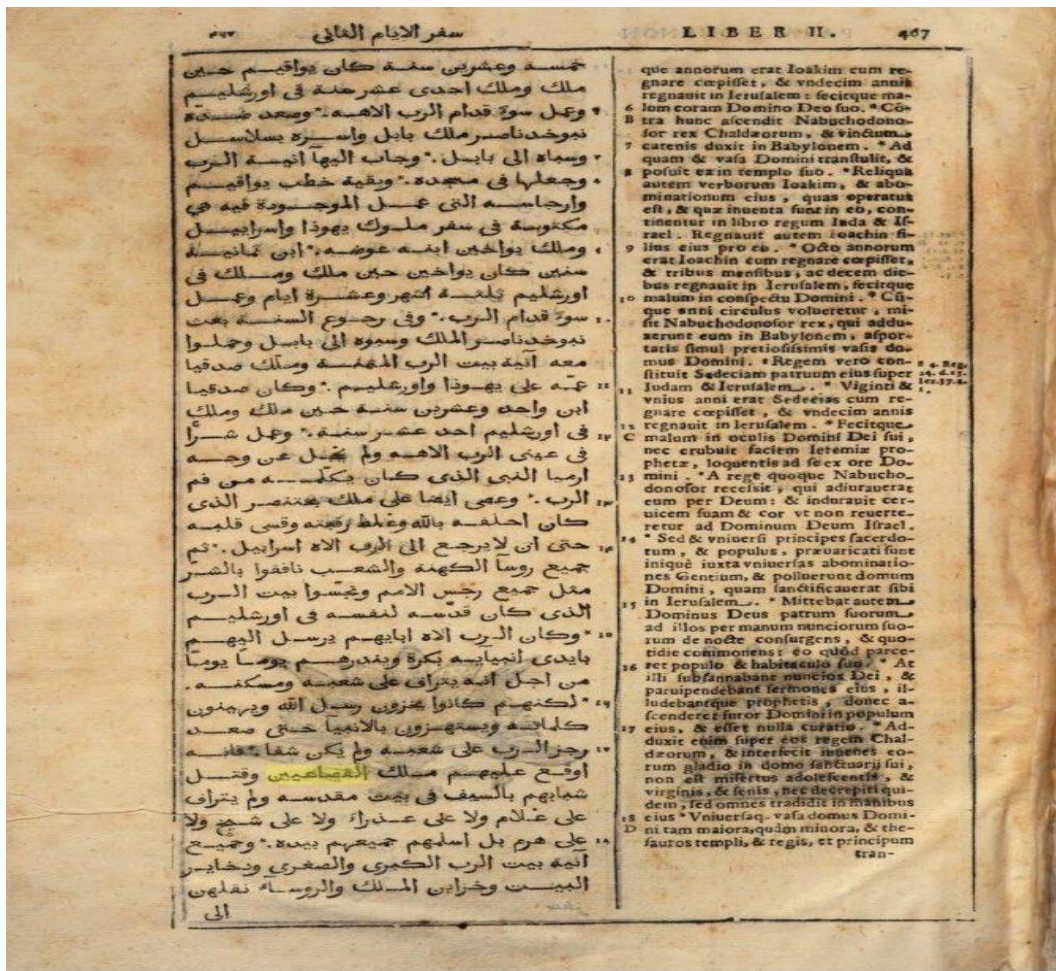 سفر الايام الثانى
LIBER II. 467
خمسـة وعشرين سنـة كان يواقيـم حـين
ملك وملك احدى عشر سنة فى اورشليـم
وعمل سوءً قدام الرب الاهـه .* وصعد ضـدة
نبوخدناصر ملك بابل واسـرة بسلاسـل
وسباه الى بابـل .* وجاب اليها آنيـة الـرب
وجعلها فى مسجده .* وبقية خطب يواقيـم
وارجاسـه التى عمـل الموجـودة فيه هى
مكتوبـة فى سفر ملـوك يهوذا واسراييـل
وملك يواخين ابنـه عوضـه .* ابن ثمانيـة
سنين كان يواخين حين ملك ومـلك فى
اورشليم ثلثـة اشهر وعشـرة ايام وعمـل
سوءً قدام الرب .* وفى رجـوع السنـة بعث
نبوخدناصـر الملك وسبوه الى بابـل وحملـوا
معه آنية بيت الرب المثمنـة وملّك صدقيا
عمّـه على يهـوذا واورشليـم .* وكان صدقيـا
ابن واحد وعشرين سنـة حـين ملك وملك
فى اورشليم احد عشـر سنـة .* وعمل شـرًّا
فى عينى الرب الاهـه ولم يخجل عن وجـه
ارميا النبى الذى كان يكلّمـه من فم
الرب .* وعصى ايضا على ملك بختنصر الذى
كان احلفـه بالله وغلظ رقبته وقسى قلبـه
حتى ان لا يرجـع الى الرب الاه اسراييل .* ثم
جميع روسآ الكهنة والشعـب نافقوا بالشـر
مثل جميع رجس الامم ونجّسوا بيت الـرب
الذى كان قدّسه لنفسـه فى اورشليـم
* وكان الـرب الاه اباييهم يرسـل اليهـم
بايدى انبيايـه بكرة وينذرهـم يومـاً يومـاً
من اجل انـه يتراف على شعبـه ومسكنـه .
* لكنهـم كانوا يحزون رسـل الله ويهينون
كلماتـه ويستهزون بالانبيآ حـتى صعـد
رجز الـرب على شعبـه ولم يكن شفا .* فانـه
اوقـع عليهـم مـلك وقتـل
شبابهم بالسيف فى بيت مقدسـه ولم يتراف
على غـلام ولا على عـذرآء ولا على شـيخ ولا
على هرم بل اسلمهم جميعهم بيده .* وجميـع
آنية بيت الرب الكبرى والصغرى وذخايـر
البيـت وخزاين المـلك والروسـآء نقلهن
الى
que annorum erat Ioakim cum re-
gnare cœpisset, & vndecim annis
regnauit in Ierusalem : fecitque ma-
6 lom coram Domino Deo suo. * Cõ-
B tra hunc ascendit Nabuchodono-
sor rex Chaldæorum, & vinctum
7 catenis duxit in Babylonem. * Ad
quam & vasa Domini transtulit, &
8 posuit ea in templo suo. * Reliqua
autem verborum Ioakim, & abo-
minationum eius, quas operatus
est, & quæ inuenta sunt in eo, con-
tinentur in libro regum Iuda & Is-
rael. Regnauit autem Ioachin fi-
9 lius eius pro eo. * Octo annorum
erat Ioachin cum regnare cœpisset,
& tribus mensibus, ac decem die-
bus regnauit in Ierusalem, fecitque
10 malum in conspectu Domini. * Cũ-
que anni circulus volueretur, mi-
sit Nabuchodonosor rex, qui addu-
xerunt eum in Babylonem, aspor-
tatis simul pretiosissimis vasis do-
mus Domini. * Regem vero con-
stituit Sedeciam patruum eius super
a 4. Reg.
24. d. 15.
Ier. 37. a.
1.
11 Iudam & Ierusalem. * Viginti &
vnius anni erat Sedecias cum re-
gnare cœpisset, & vndecim annis
12 regnauit in Ierusalem. * Fecitque
C malum in oculis Domini Dei sui,
nec erubuit faciem Ieremiæ pro-
phetæ, loquentis ad se ex ore Do-
13 mini. * A rege quoque Nabucho-
donosor recessit, qui adiurauerat
eum per Deum: & indurauit cer-
uicem suam & cor vt non reuerte-
retur ad Dominum Deum Israel.
14 * Sed & vniuersi principes sacerdo-
tum, & populus, præuaricati sunt
iniquè iuxta vniuersas abominatio-
nes Gentium, & polluerunt domum
Domini, quam sanctificauerat sibi
15 in Ierusalem. * Mittebat autem
Dominus Deus patrum suorum
ad illos per manum nunciorum suo-
rum de nocte consurgens, & quo-
tidie commonens: eo quòd parce-
16 ret populo & habitaculo suo. * At
illi subsannabant nuncios Dei, &
paruipendebant sermones eius, il-
ludebantque prophetis, donec a-
scenderet furor Domini in populum
17 eius, & esset nulla curatio. * Ad-
duxit enim super eos regem Chal-
dæorum, & interfecit iuuenes eo-
rum gladio in domo sanctuarij sui,
non est misertus adolescentis, &
virginis, & senis, nec decrepiti qui-
dem, sed omnes tradidit in manibus
18 eius * Vniuersaq. vasa domus Domi-
D ni tam maiora, quàm minora, & the-
sauros templi, & regis, et principum
tran-